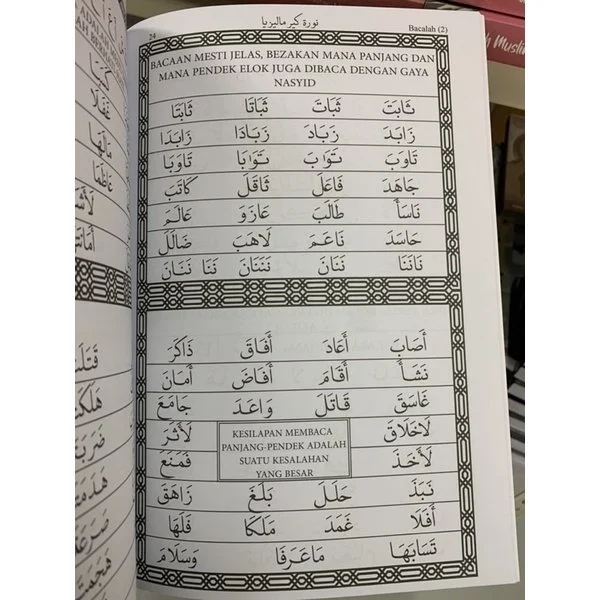 Bacalah (2) نورة كبر ماليزيا 24
BACAAN MESTI JELAS, BEZAKAN MANA PANJANG DAN
MANA PENDEK ELOK JUGA DIBACA DENGAN GAYA
NASYID
ثَابَتَ ثَبَاتَ ثَبَاتَا ثَابَتَا
زَابَدَ زَبَادَ زَبَادَا زَابَدَا
تَاوَبَ تَوَابَ تَوَابَا تَاوَبَا
جَاهَدَ فَاعَلَ ثَاقَلَ كَاتَبَ
نَاسَأَ طَالَبَ عَازَوَ عَالَمَ
حَاسَدَ نَاعَمَ لَاهَبَ ضَالَلَ
نَاتَنَا نَتَانَ نَتَنَانَ نَتَا نَتَنَانَ
أَصَابَ أَعَادَ أَفَاقَ ذَاكَرَ
نَشَأَ أَقَامَ أَفَاضَ أَمَانَ
غَاسَقَ قَاتَلَ وَاعَدَ جَامَعَ
لَاخَلَاقَ لَأَثَرَ
لَأَخَذَ فَمَنَعَ
KESILAPAN MEMBACA
PANJANG-PENDEK ADALAH
SUATU KESALAHAN
YANG BESAR
نَبَذَ حَلَلَ بَلَغَ زَاهَقَ
أَفَلَا عَمَدَ مَلَكَا فَلَهَا
تَسَابَهَا مَاعَرَفَا وَسَلَامَ